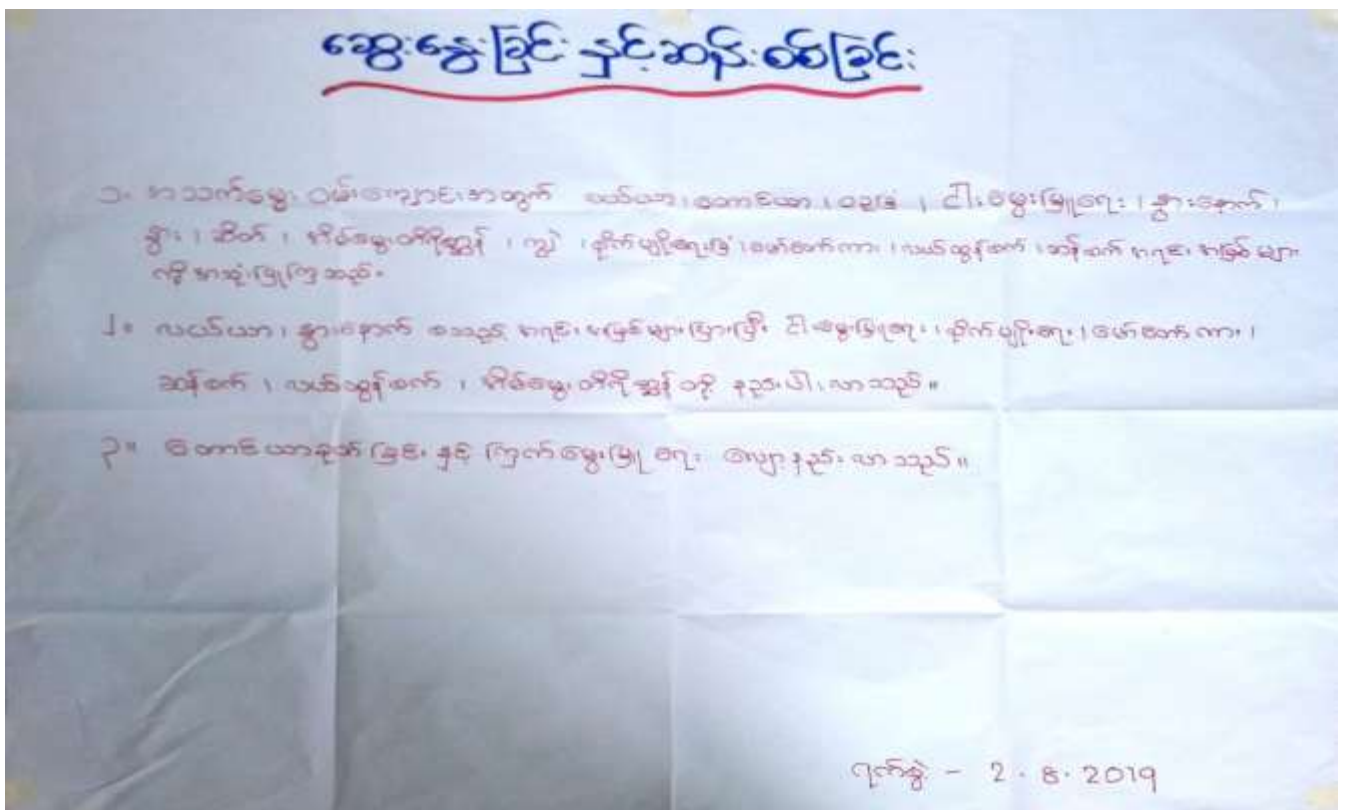 ဆွေးနွေးခြင်း နှင့်ဆန်းစစ်ခြင်း
၁။ အသက်မွေး ဝမ်းကျောင်းအတွက် လယ်ယာ၊ တောင်ယာ၊ ဥယျာဉ်ခြံ၊ ငါးမွေးမြူရေး၊ နွားနောက်၊
နွား၊ ဆိတ်၊ အိမ်မွေးတိရိစ္ဆာန်၊ ကျွဲ၊ စိုက်ပျိုးရေးခြံ၊ မော်တော်ကား၊ လယ်ထွန်စက်၊ ဆန်စက် အရင်းအမြစ်များ
ကို အသုံးပြုကြသည်။
၂။ လယ်ယာ၊ နွားနောက် စသည့် အရင်းအမြစ်များပြားပြီး ငါးမွေးမြူရေး၊ စိုက်ပျိုးရေး၊ မော်တော်ကား၊
ဆန်စက်၊ လယ်ထွန်စက်၊ အိမ်မွေးတိရိစ္ဆာန်တို့ နည်းပါးလာသည်။
၃။ တောင်ယာခုတ်ခြင်း နှင့် ကြက်မွေးမြူရေး လျော့နည်းလာသည်။
ရက်စွဲ - 2.8.2019